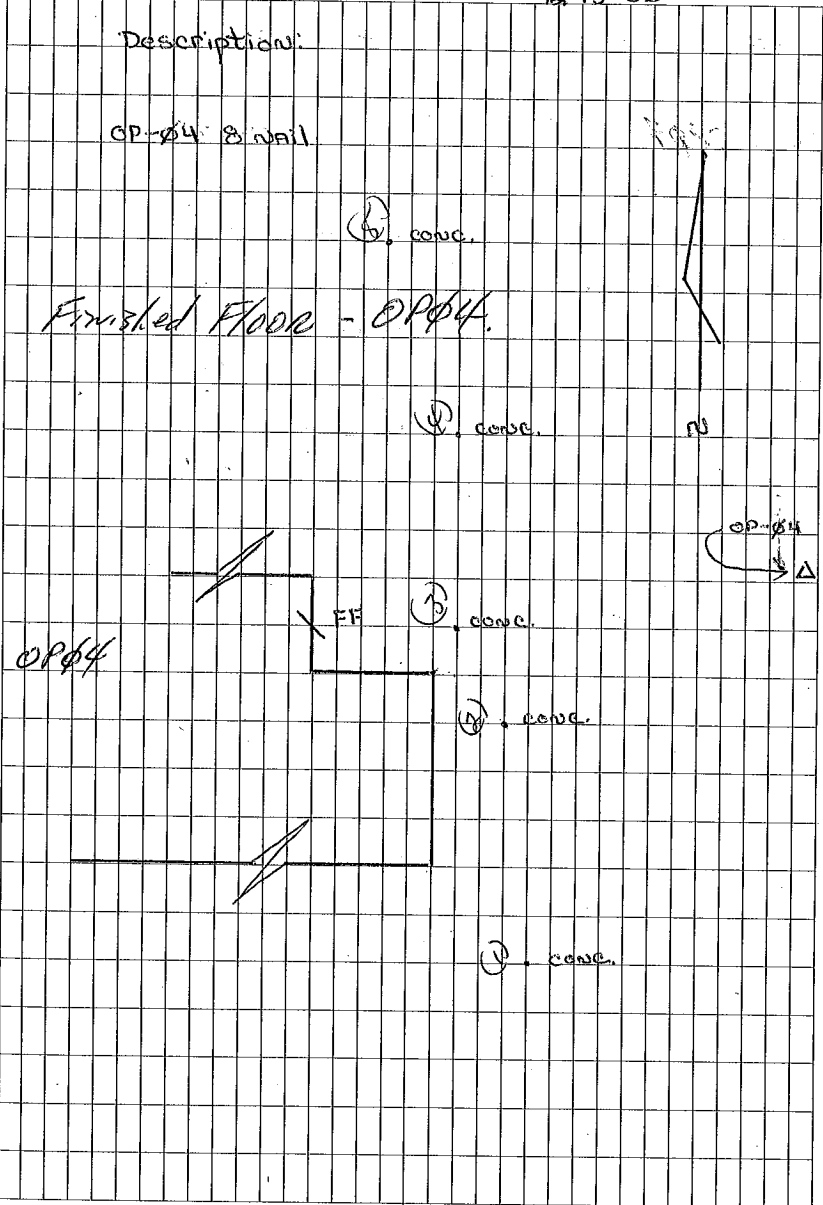 Description:
OP-Ø4 8 NAIL
conc.
Finished Floor - OPØ4.
④. conc.
N
OP-Ø4
FF
③. conc.
OPØ4
②. conc.
①. conc.